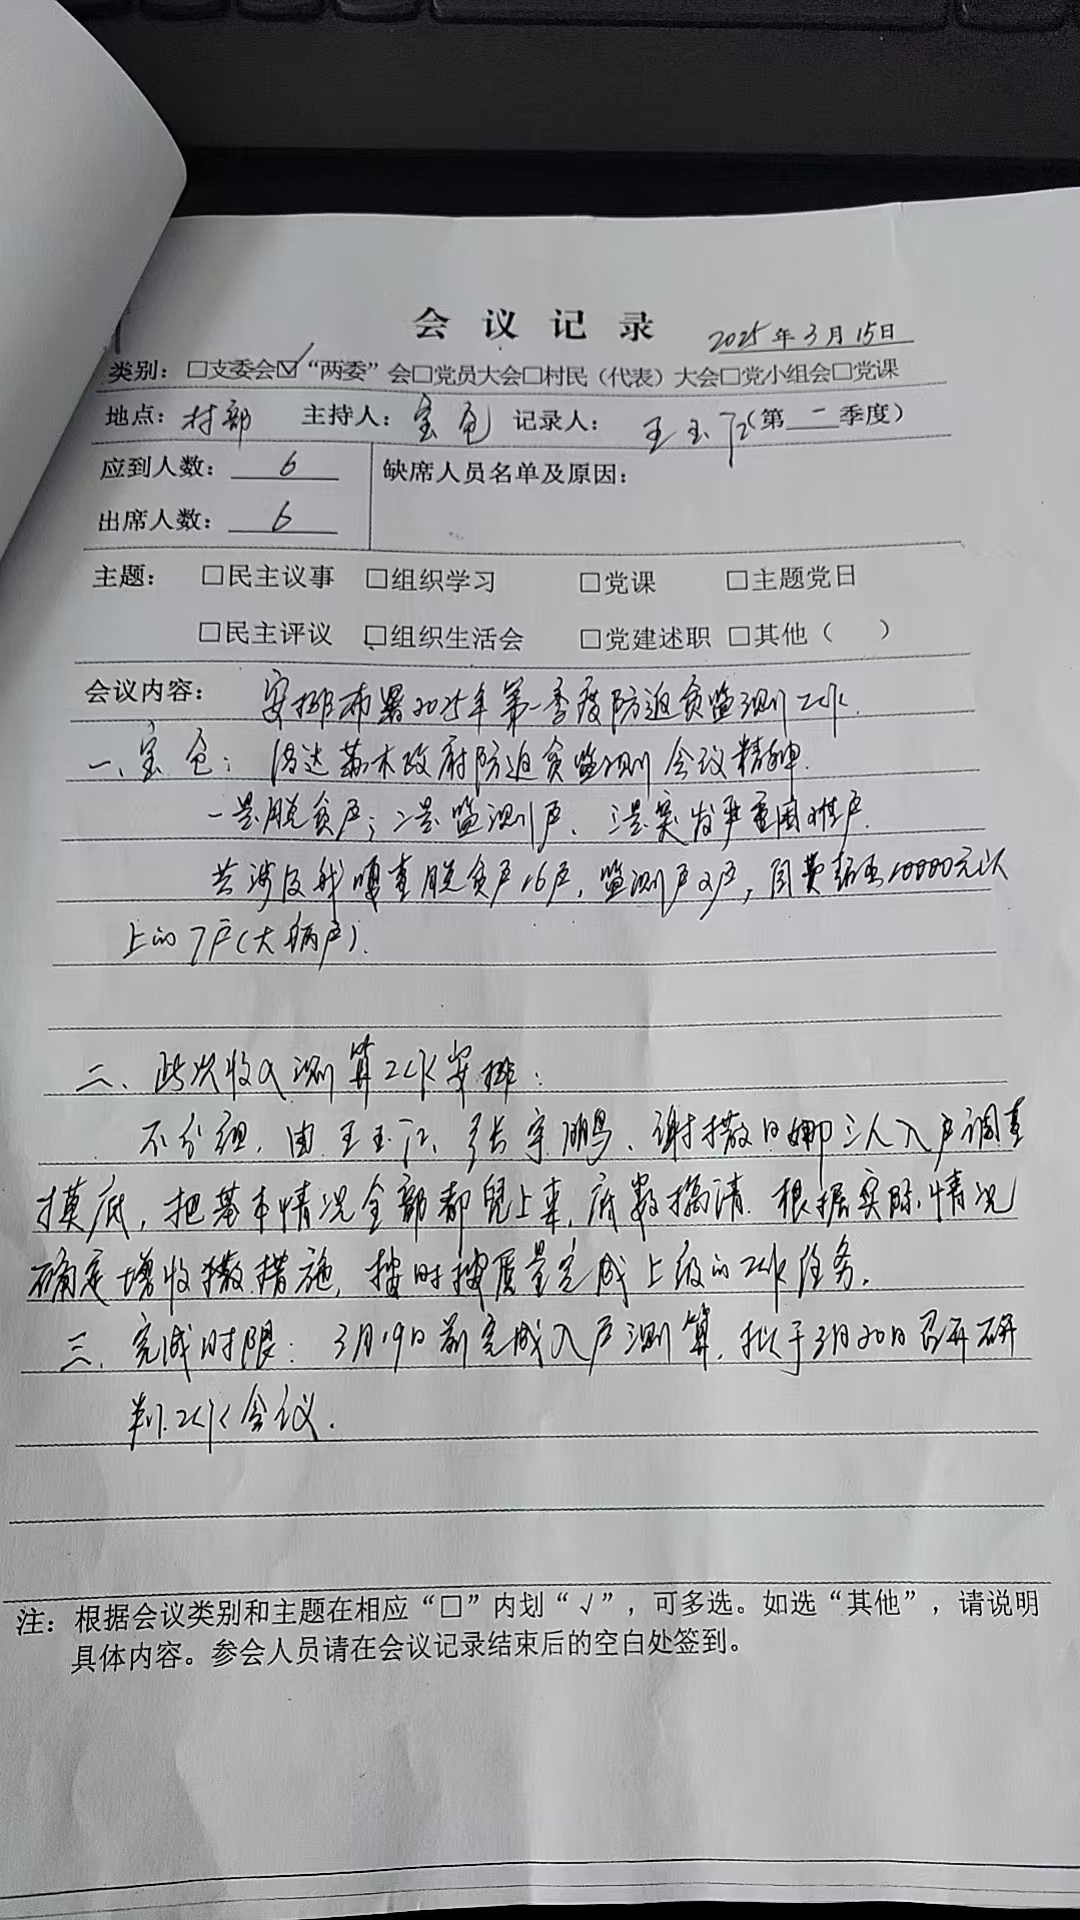 会议记录
2025年3月15日
类别：□支委会☑“两委”会□党员大会□村民（代表）大会□党小组会□党课
地点：村部 主持人：宝仓 记录人：王玉江（第二季度）
应到人数：6 缺席人员名单及原因：
出席人数：6
主题：□民主议事 □组织学习 □党课 □主题党日
□民主评议 □组织生活会 □党建述职 □其他（ ）
会议内容：安排布署2025年第一季度防返贫监测工作.
一、宝仓：传达苏木政府防返贫监测会议精神.
一是脱贫户；二是监测户、三是突发严重困难户.
共涉及我嘎查脱贫户16户，监测户2户，自费超出10000元以
上的7户(大病户).
二、此次收入测算工作安排：
不分组，由王玉江、张宇鹏、谢撒日娜三人入户调查
摸底，把基本情况全部都兜上来，底数搞清.根据实际情况
确定增收措施，按时按质量完成上级的工作任务.
三、完成时限：3月19日前完成入户测算，拟于3月20日召开研
判工作会议.
注：根据会议类别和主题在相应“□”内划“√”，可多选。如选“其他”，请说明
具体内容。参会人员请在会议记录结束后的空白处签到。